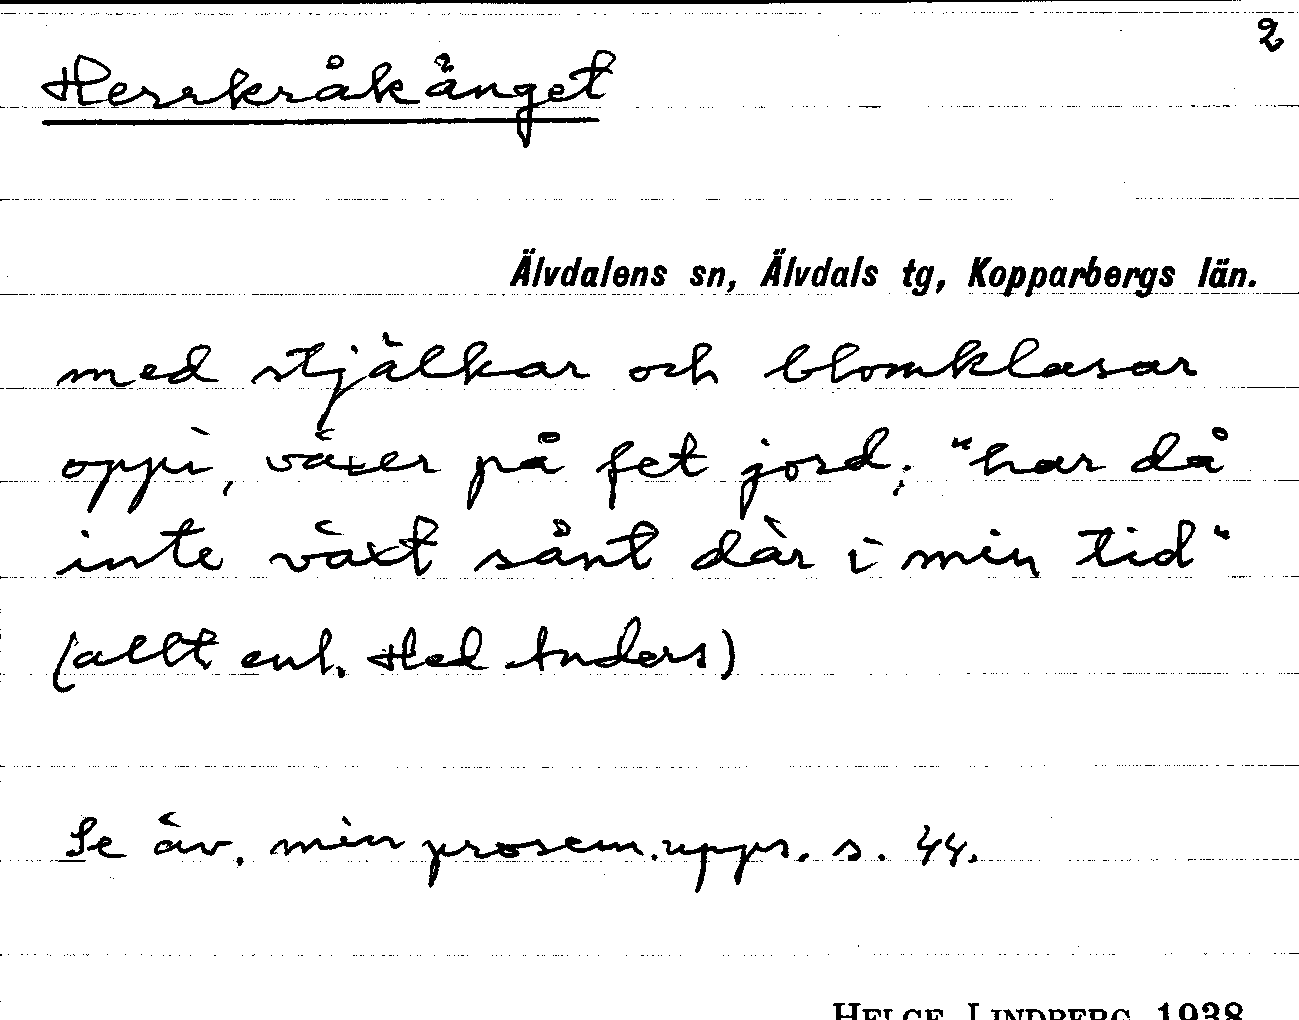 2
Herrkråkänget
Älvdalens sn, Älvdals tg, Kopparbergs län.
med stjälkar och blomklasar
oppi, växer på fet jord; "har då
inte växt sånt där i min tid"
(allt enl. Hed Anders)
Se äv. min prosem.upps. s. 44.
HELGE LINDBERG 1938